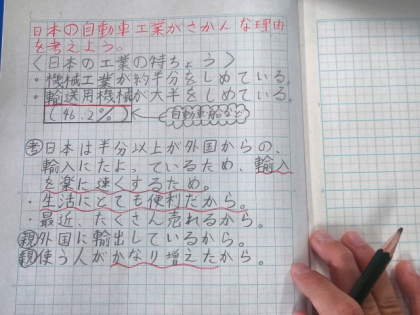 日本の自動車工業がさかんな理由
を考えよう。
〈日本の工業の特ちょう〉
・機械工業が約半分をしめている。
・輸送用機械が大半をしめている。
(46.2%) 自動車船など
考日本は半分以上が外国からの、
輸入にたよっているため、輸入
を楽に速くするため。
・生活にとても便利だから。
・最近、たくさん売れるから。
親外国に輸出しているから。
親使う人がかなり増えたから。